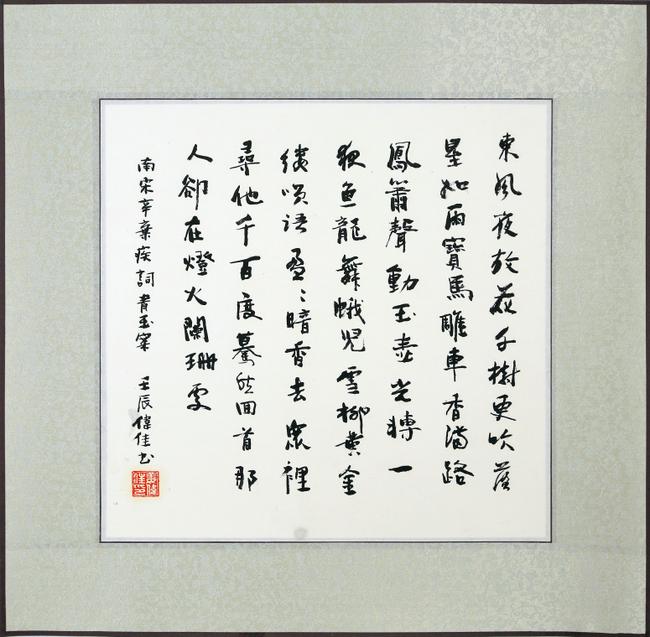 東風夜放花千樹更吹落
星如雨寶馬雕車香滿路
鳳簫聲動玉壺光轉一
夜魚龍舞蛾兒雪柳黃金
縷笑語盈々暗香去眾裡
尋他千百度驀然回首那
人卻在燈火闌珊處
南宋辛棄疾詞青玉案 壬辰偉佳书